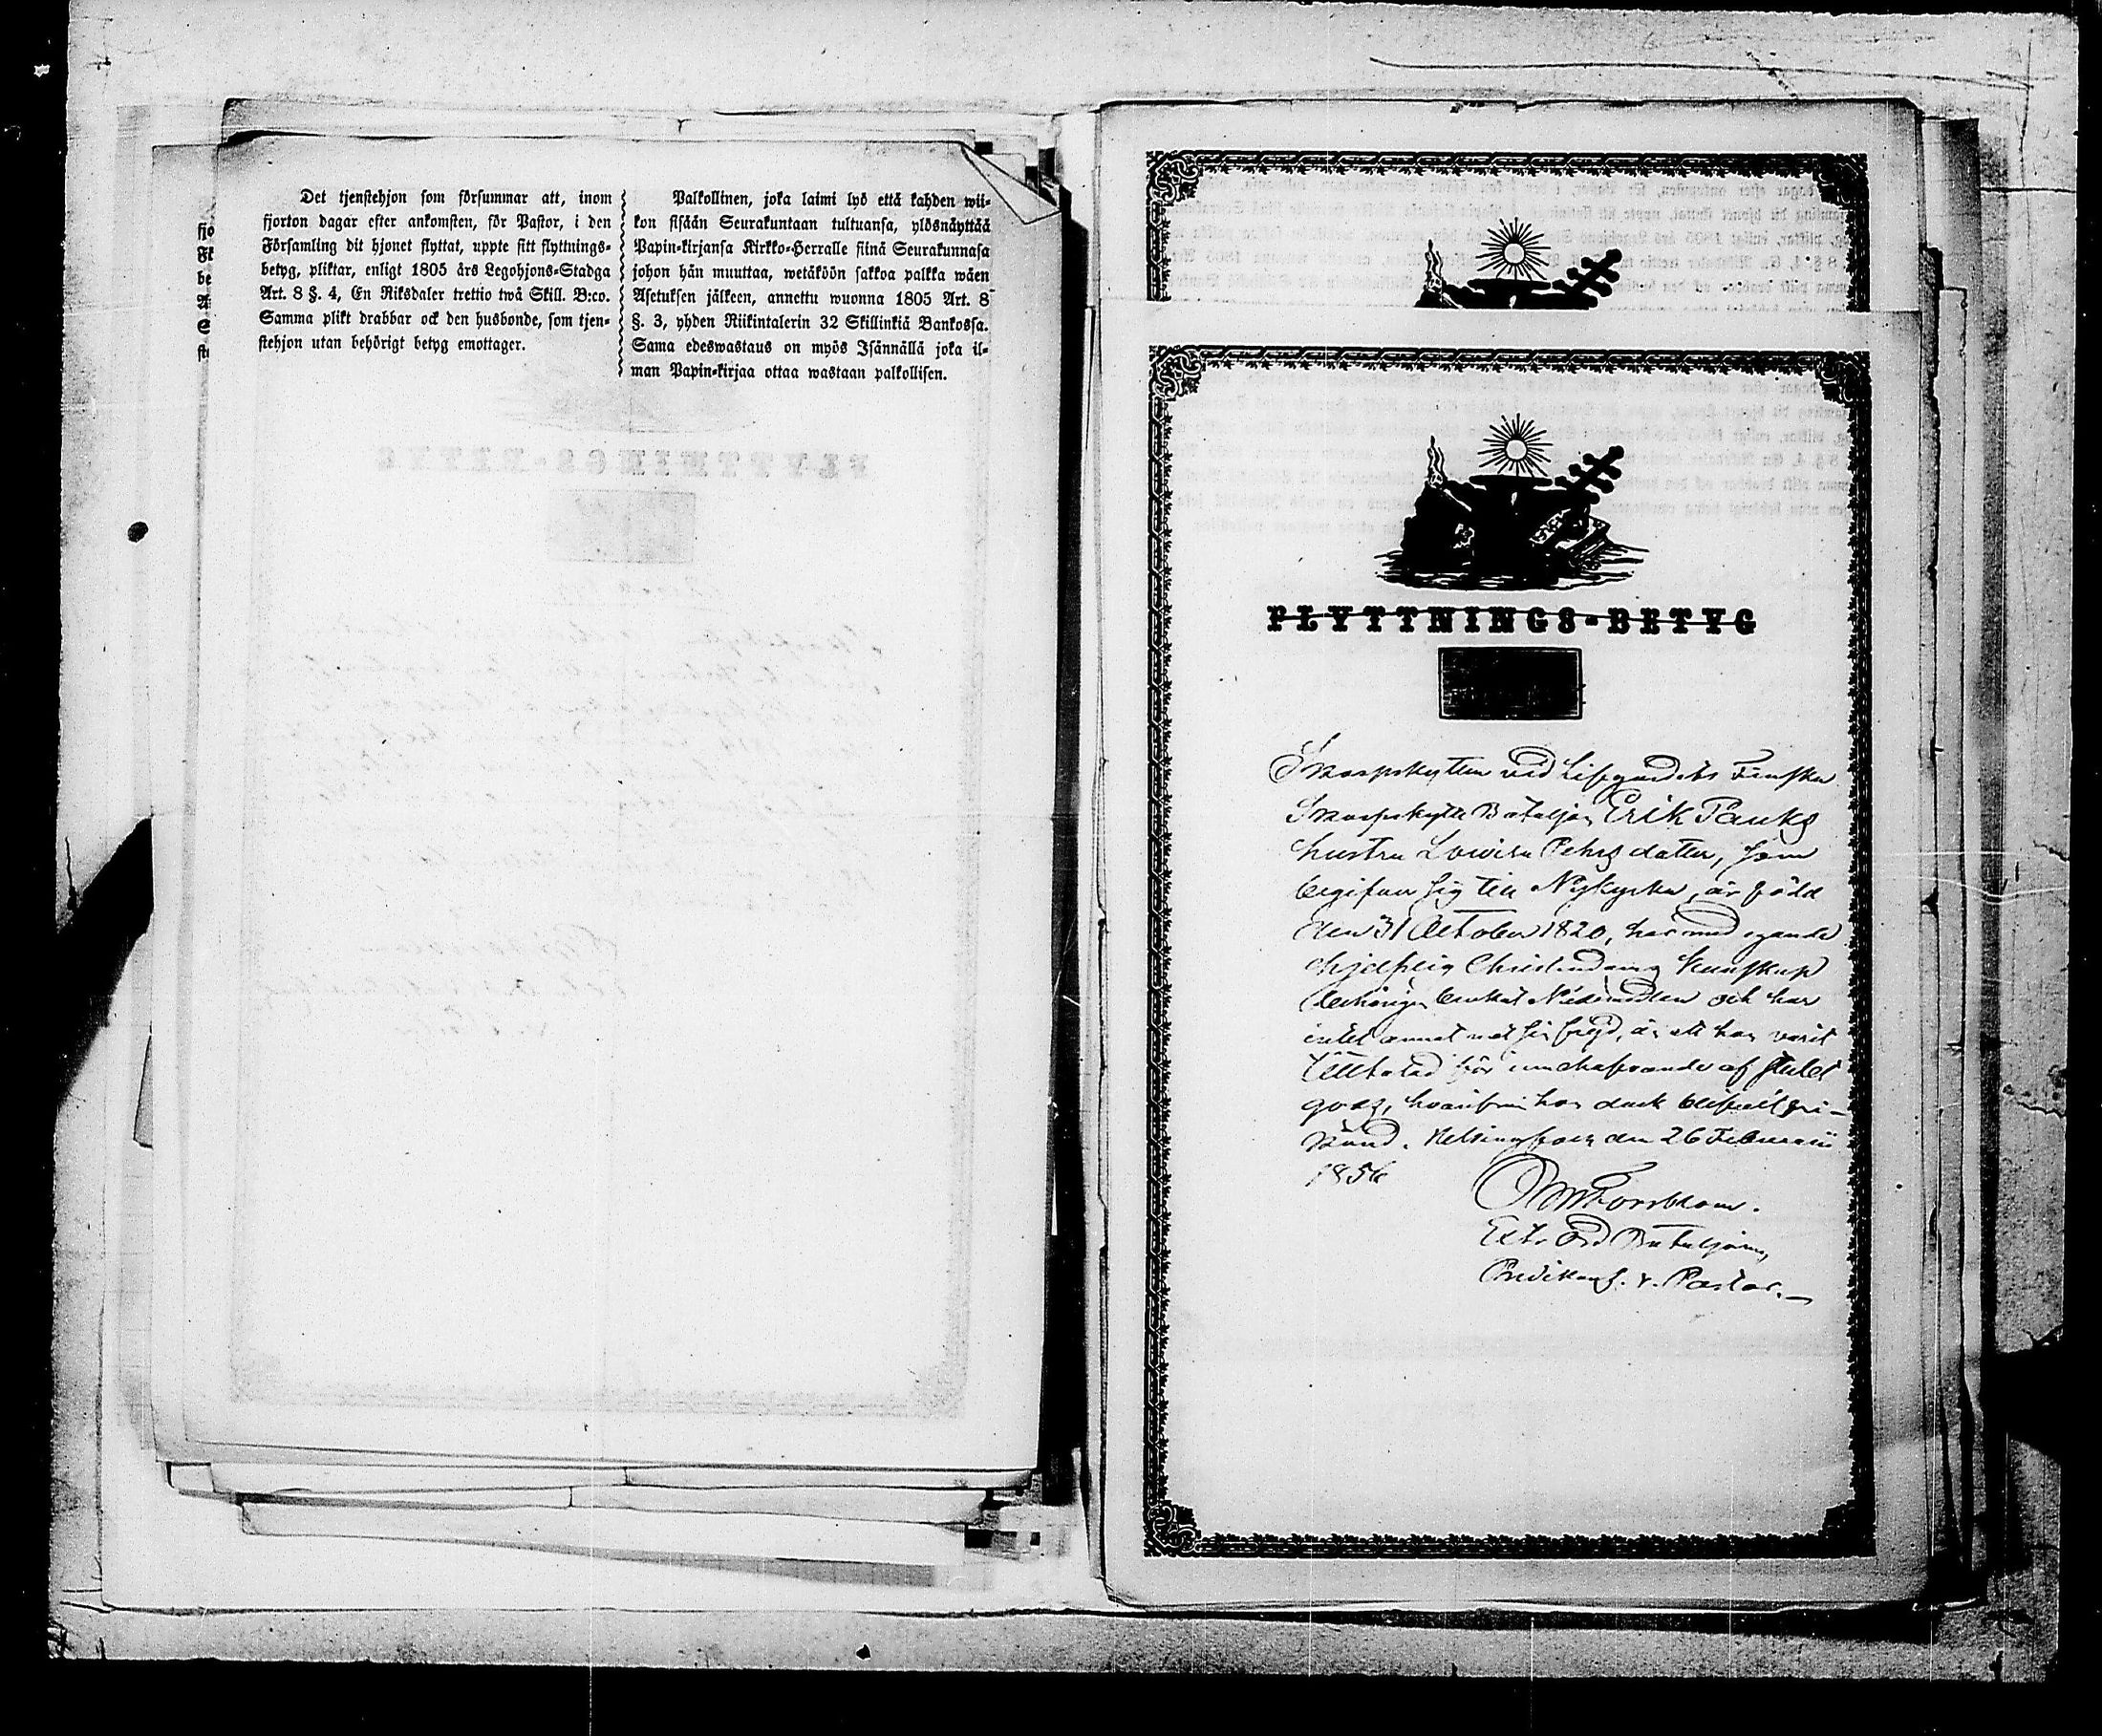 Det tjenstehjon som försummar att, inom
fjorton dagar efter ankomsten, för Pastor, i den
Församling dit hjonet flyttat, uppte sitt flyttnings-
betyg, pliktar, enligt 1805 års Legohjons-Stadga
Art. 8 §. 4, En Riksdaler trettio twå Skill. B:co.
Samma plikt drabbar ock den husbonde, som tjen-
stehjon utan behörigt betyg emottager.
Palkollinen, joka laimi lyö että kahden wii-
kon sisään Seurakuntaan tultuansa, ylösnäyttää
Papin-kirjansa Kirkko-Herralle siinä Seurakunnasa
johon hän muuttaa, wetäköön sakkoa palkka wäen
Asetuksen jälkeen, annettu wuonna 1805 Art. 8
§. 3, yhden Riikintalerin 32 Skillinkiä Bankossa.
Sama edeswastaus on myös Isännällä joka il-
man Papin-kirjaa ottaa wastaan palkollisen.
FLYTTNINGS-BETYG
Skarpskytten vid Lifgardets Finska
Skarpskytte Bataljon Erik Pauks
hustru Lovisa Pehrsdotter, som
begifver sig till Nykyrka, är född
den 31 October 1820, har med egande
hjelplig Christendoms kunskap
behörigen brukat Nådemedlen och har
intet annat mot sin frejd, än att hon varit
tilltalad för innehafvande af stulet
gods, hvarifrån hon dock blifvit fri-
känd. Helsingfors den 26 Februarii
1856
Forsblom.
Extr Ord Bataljons
Predikant. v. Pastor.